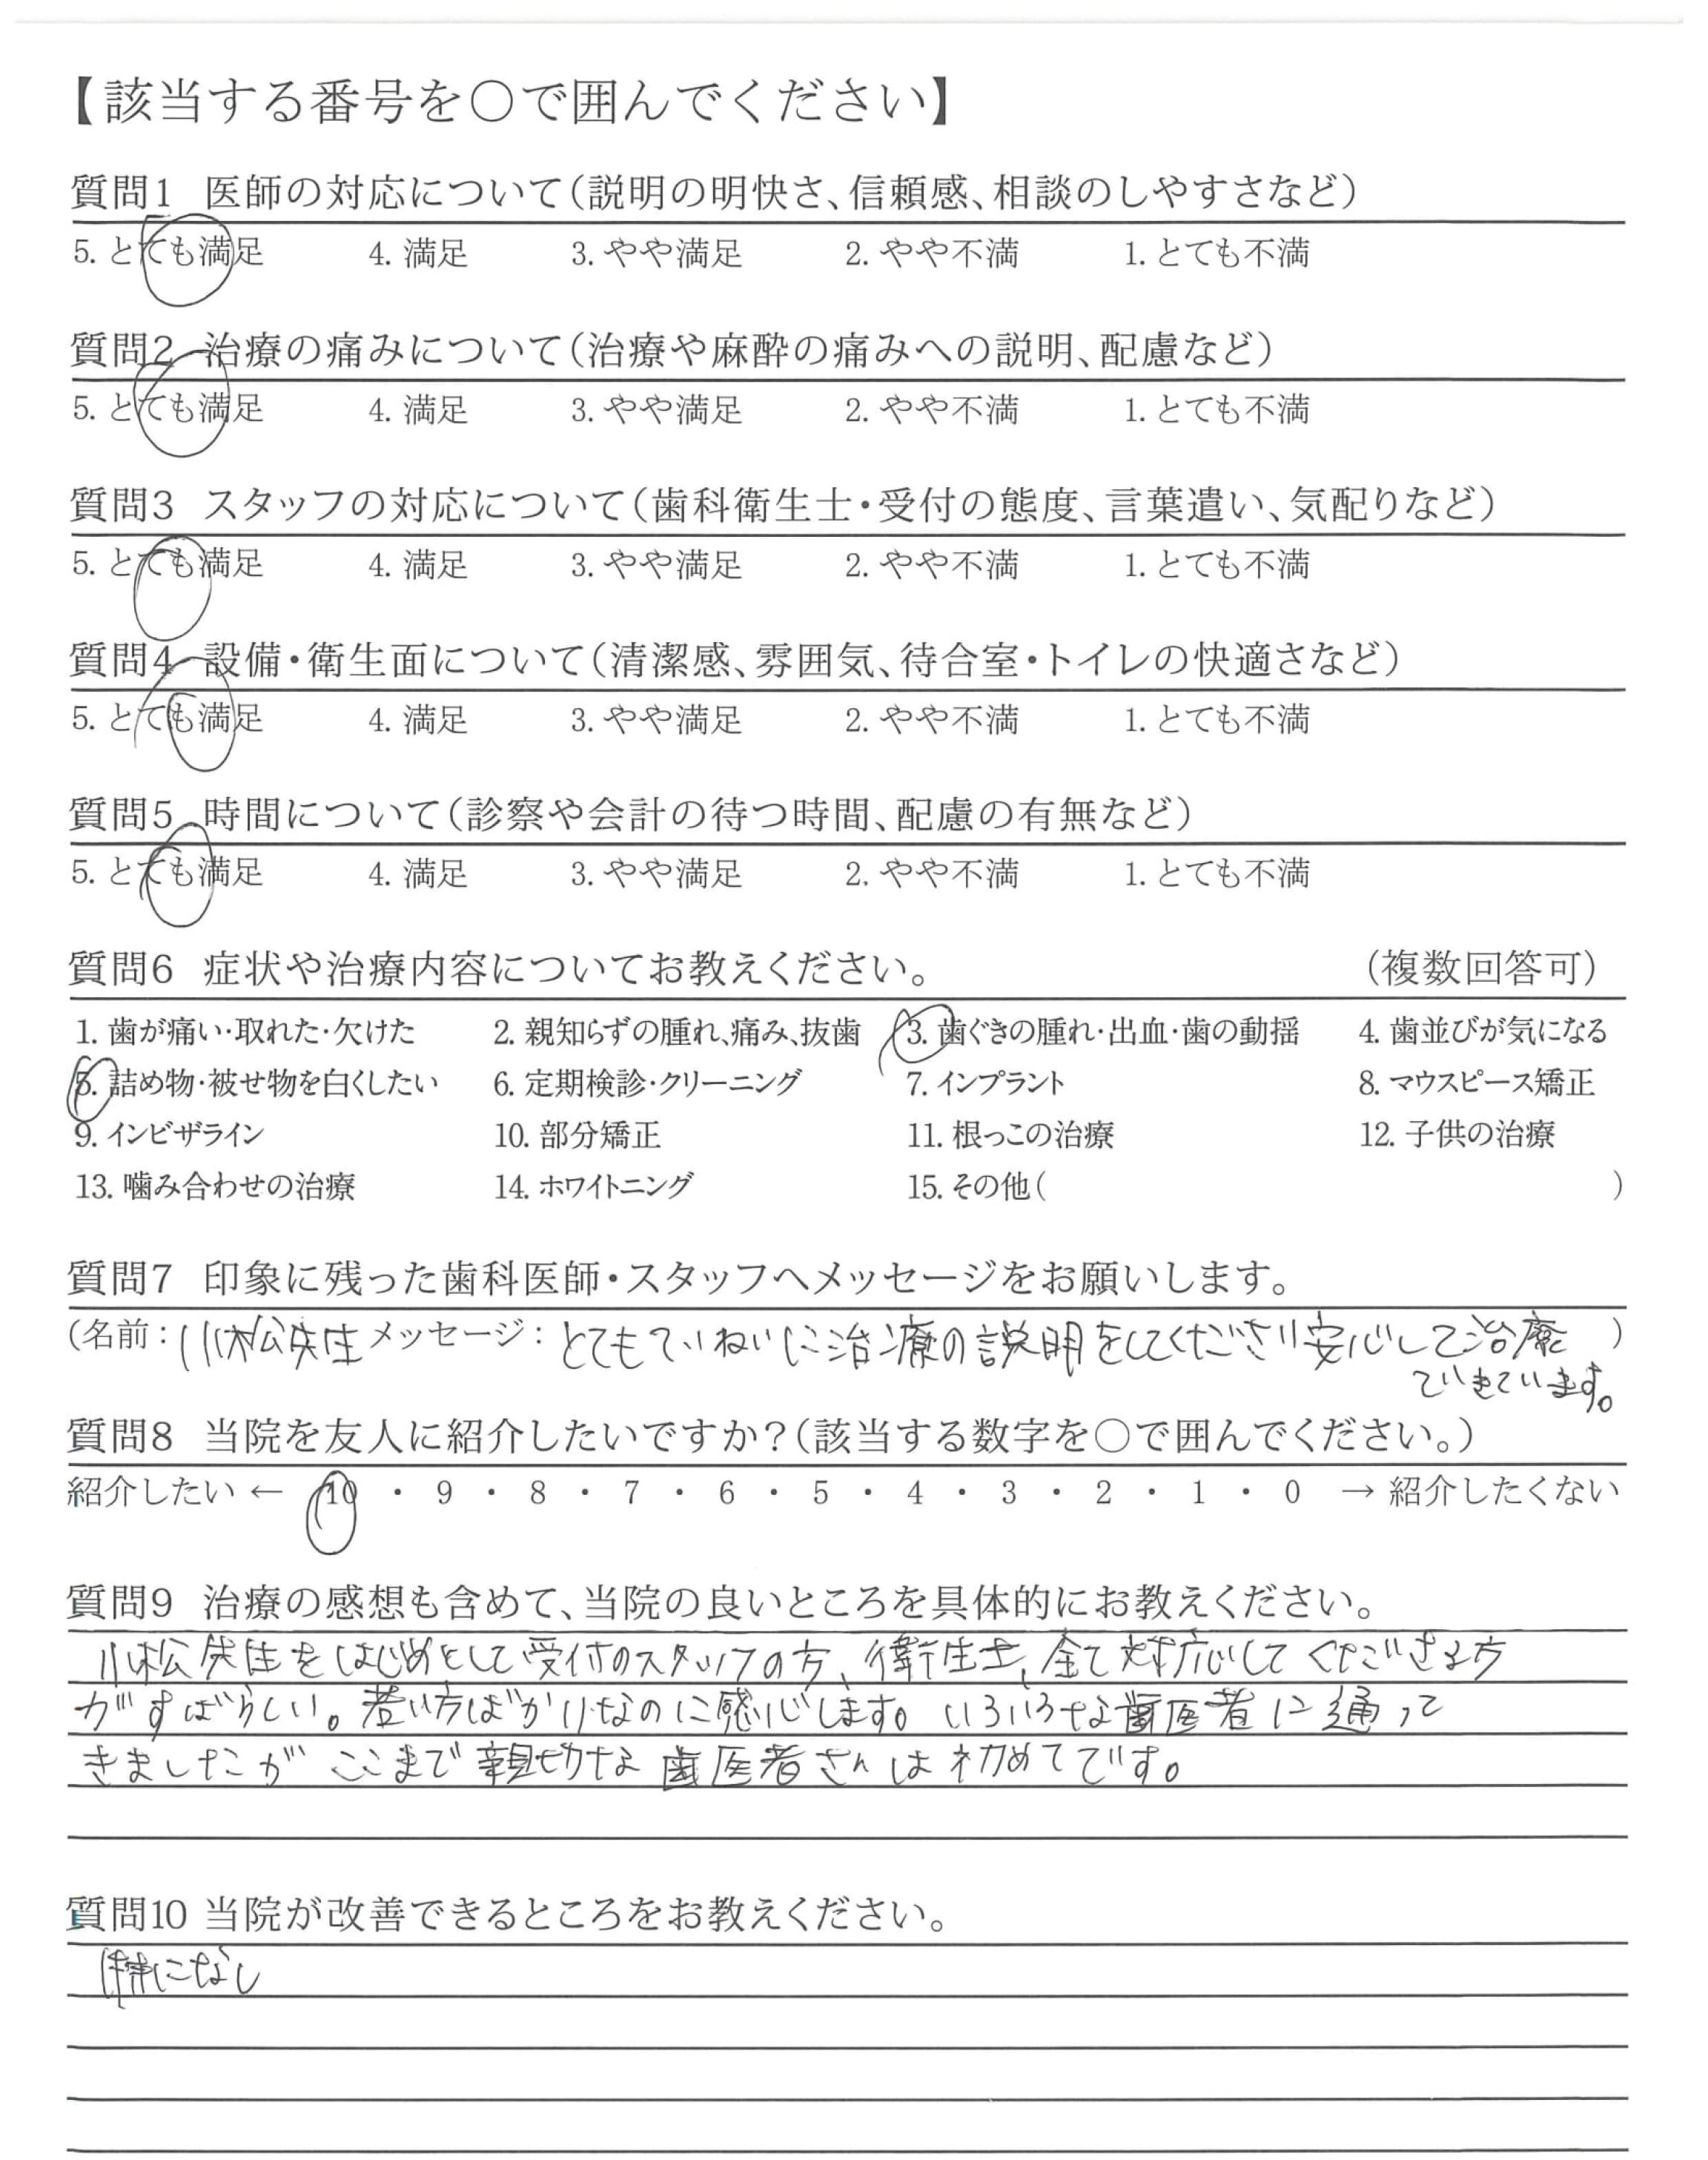 【該当する番号を〇で囲んでください】
質問1 医師の対応について(説明の明快さ、信頼感、相談のしやすさなど)
5. とても満足 4. 満足 3. やや満足 2. やや不満 1. とても不満
質問2 治療の痛みについて(治療や麻酔の痛みへの説明、配慮など)
5. とても満足 4. 満足 3. やや満足 2. やや不満 1. とても不満
質問3 スタッフの対応について(歯科衛生士・受付の態度、言葉遣い、気配りなど)
5. とても満足 4. 満足 3. やや満足 2. やや不満 1. とても不満
質問4 設備・衛生面について(清潔感、雰囲気、待合室・トイレの快適さなど)
5. とても満足 4. 満足 3. やや満足 2. やや不満 1. とても不満
質問5 時間について(診察や会計の待つ時間、配慮の有無など)
5. とても満足 4. 満足 3. やや満足 2. やや不満 1. とても不満
質問6 症状や治療内容についてお教えください。 (複数回答可)
1. 歯が痛い・取れた・欠けた 2. 親知らずの腫れ、痛み、抜歯 3. 歯ぐきの腫れ・出血・歯の動揺 4. 歯並びが気になる
5. 詰め物・被せ物を白くしたい 6. 定期検診・クリーニング 7. インプラント 8. マウスピース矯正
9. インビザライン 10. 部分矯正 11. 根っこの治療 12. 子供の治療
13. 噛み合わせの治療 14. ホワイトニング 15. その他( )
質問7 印象に残った歯科医師・スタッフへメッセージをお願いします。
(名前:小松先生 メッセージ:とてもていねいに治療の説明をしてくださり安心して治療 )
できています。
質問8 当院を友人に紹介したいですか?(該当する数字を〇で囲んでください。)
紹介したい ← 10 ・ 9 ・ 8 ・ 7 ・ 6 ・ 5 ・ 4 ・ 3 ・ 2 ・ 1 ・ 0 → 紹介したくない
質問9 治療の感想も含めて、当院の良いところを具体的にお教えください。
小松先生をはじめとして受付のスタッフの方、衛生士、全て対応してくださる方
がすばらしい。若い方ばかりなのに感心します。いろいろな歯医者に通って
きましたが ここまで親切な歯医者さんは初めてです。
質問10 当院が改善できるところをお教えください。
特になし